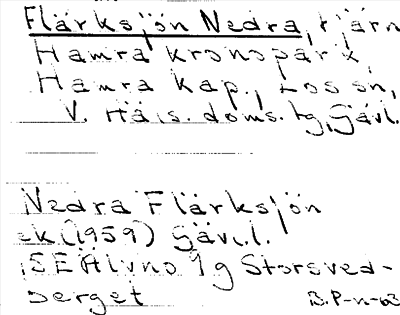 Flärksjön Nedra, tjärn
Hamra kronopark,
Hamra kap., Los sn,
V. Häls. doms. tg, Gävl.
Nedra Flärksjön
ek (1959) Gävl.l.
SE Älvho 1 g Storsved-
berget
B.P-n-63